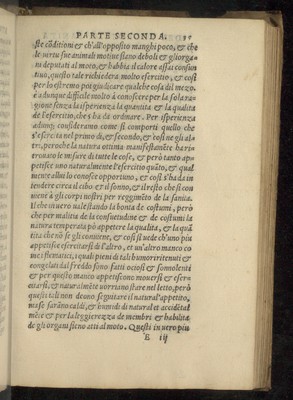 PARTE SECONDA. 35
ste cõditioni & ch'all'opposito manghi poco, & che
le vertu sue animali motiue siano deboli & gli orga-
ni deputati al moto, & habbia il calore assai consun
tino, questo tale richiederà molto esercitio, & cosi
per lo estremo poi giudicare qualche cosa del mezo.
è adunque difficile molto à conoscere per la sola ra-
gione senza la isperienza la quantita & la qualita
de l'esercitio, che s'ha da ordinare. Per isperienza
adunq; considerando come si comporti quello che
s'esercita nel primo dì, & secondo, & cosi ne gli al-
tri, peroche la natura ottima manifestamẽte ha ri-
trouato le misure di tutte le cose, & però tanto ap-
petisce uno naturalmente l'esercitio quãto, & qual
mente allui lo conosce opportuno, & cosi s'ha da in
tendere circa al cibo & il sonno, & il resto che si con
uiene à gli corpi nostri per reggimẽto de la sanita.
Il che è uero nale stando la bontà de costumi, però
che per malitia de la consuetudine & de costumi la
natura temperata pò appetere la qualita, & la quã
tita che nõ se gli conuiene, & cosi si uede ch'uno piu
appetisce esercitarsi de l'altro, et un'altro manco co
me i flematici, i quali pieni di tali humori ritenuti &
congelati dal freddo sono fatti ociosi & sonnolenti
& per questo manco appetiscono mouersi & eser-
citarsi, & naturalmẽte uorriano stare nel letto, però
questi tali non deono seguitare il natural'appetito,
ma se sarãno caldi, & humidi di natural et accidẽtal
mẽte & per la leggierezza de membri & habilita
de gli organi sieno atti al moto. Questi in uero piu
E iij